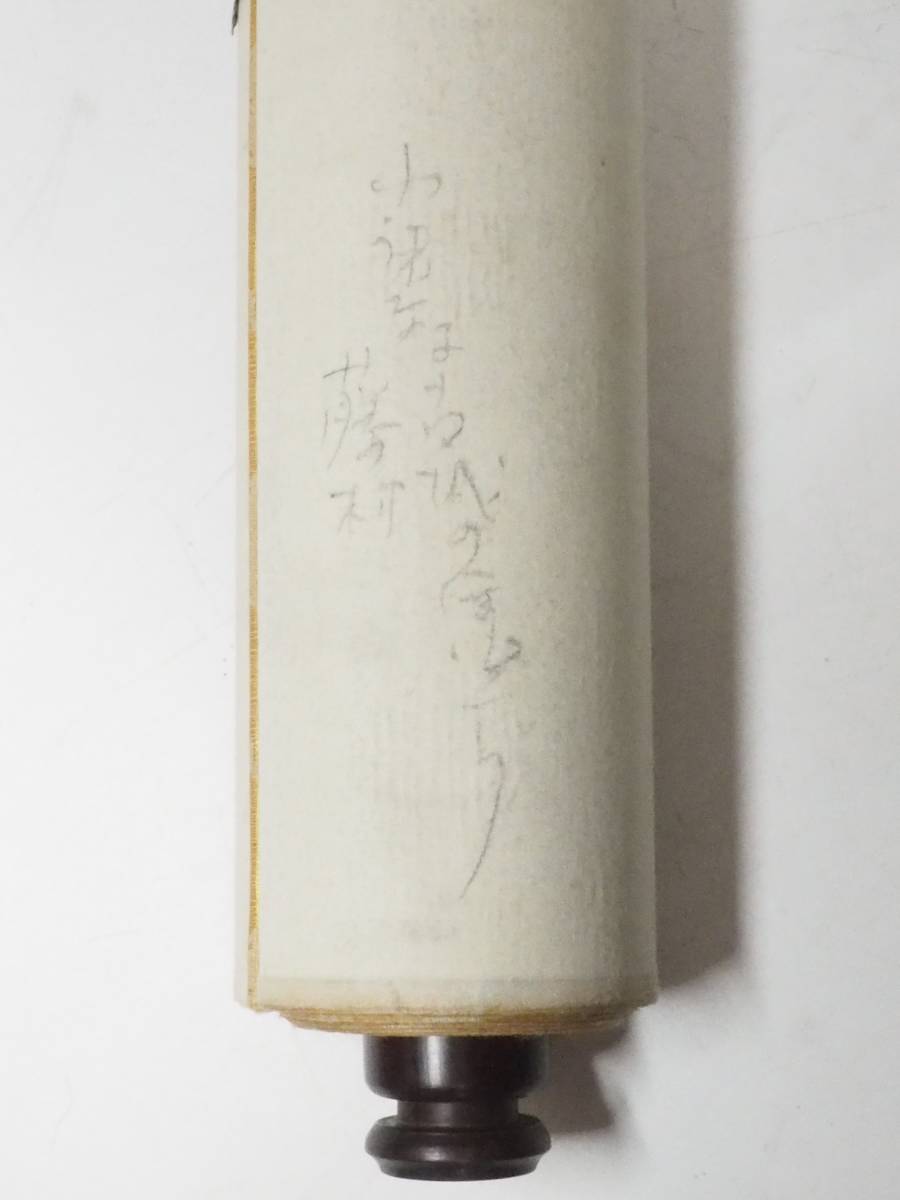 小諸なる古城のほとり
藤村